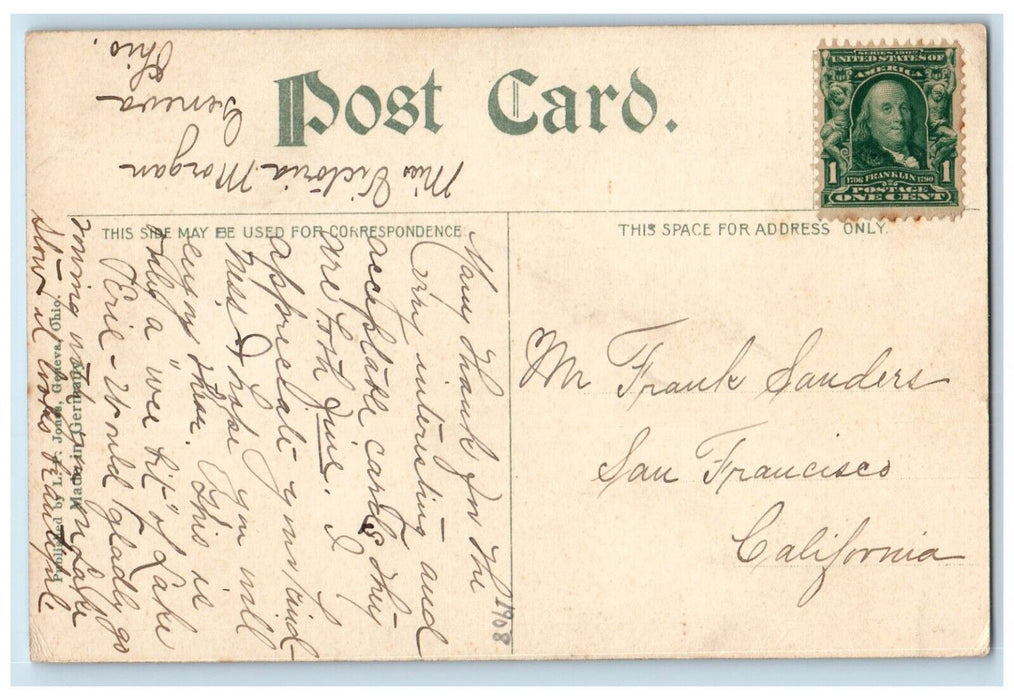 Post Card.
SERIES 1902
UNITED STATES OF
AMERICA
1 1
1706 FRANKLIN 1790
POSTAGE
ONE CENT
THIS SIDE MAY BE USED FOR CORRESPONDENCE
THIS SPACE FOR ADDRESS ONLY.
Many thanks for the
very interesting and
acceptable cards they
are both fine. I
appreciate your kind-
ness I hope you will
enjoy them. This is
only a "wee bit" of Lake
Erie - Would gladly go
rowing with you on Lake
it looks tranquil.
Miss Victoria Morgan
Geneva
Ohio.
Mr Frank Sanders
San Francisco
California
1908
Published by L. P. Jones, Geneva, Ohio.
Made in Germany